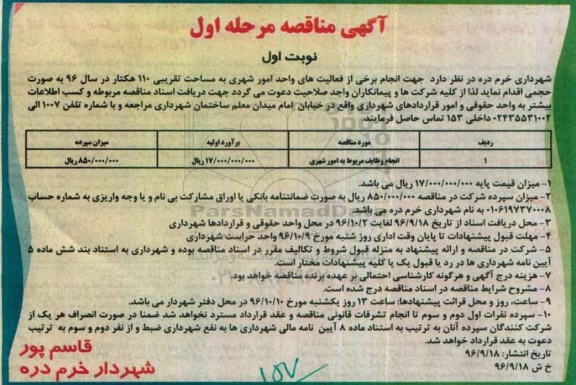 آگهی مناقصه مرحله اول
نوبت اول
شهرداری خرم دره در نظر دارد جهت انجام برخی از فعالیت های واحد امور شهری به مساحت تقریبی ۱۱۰ هکتار در سال ۹۶ به صورت
حجمی اقدام نماید لذا از کلیه شرکت ها و پیمانکاران واجد صلاحیت دعوت می گردد جهت دریافت اسناد مناقصه مربوطه و کسب اطلاعات
بیشتر به واحد حقوقی و امور قراردادهای شهرداری واقع در خیابان امام میدان معلم ساختمان شهرداری مراجعه و با شماره تلفن ۱۰۰۷ الی
۰۲۴۳۵۵۳۱۰۰۲ داخلی ۱۵۳ تماس حاصل فرمایند.
ردیف مورد مناقصه برآورد اولیه میزان سپرده
۱ انجام وظایف مربوط به امور شهری ۱۷/۰۰۰/۰۰۰/۰۰۰ ریال ۸۵۰/۰۰۰/۰۰۰ ریال
۱- میزان قیمت پایه ۱۷/۰۰۰/۰۰۰/۰۰۰ ریال می باشد.
۲- میزان سپرده شرکت در مناقصه ۸۵۰/۰۰۰/۰۰۰ ریال به صورت ضمانتنامه بانکی یا اوراق مشارکت بی نام و یا وجه واریزی به شماره حساب
۰۱۰۶۱۹۷۳۷۰۰۰۸ به نام شهرداری خرم دره می باشد.
۳- محل دریافت اسناد از تاریخ ۹۶/۹/۱۸ لغایت ۹۶/۱۰/۲ در محل واحد حقوقی و قراردادها شهرداری
۴- مهلت قبول پیشنهادات تا پایان وقت اداری روز شنبه مورخ ۹۶/۱۰/۹ واحد حراست شهرداری
۵- شرکت در مناقصه و ارائه پیشنهاد به منزله قبول شروط و تکالیف مقرر در اسناد مناقصه بوده و شهرداری به استناد بند شش ماده ۵
آیین نامه شهرداری ها در رد یا قبول یک یا کلیه پیشنهادات مختار است.
۷- هزینه درج آگهی و هرگونه کارشناسی احتمالی بر عهده برنده مناقصه خواهد بود.
۸- مشروح شرایط مناقصه در اسناد مناقصه درج شده است.
۹- ساعت، روز و محل قرائت پیشنهادها: ساعت ۱۳ روز یکشنبه مورخ ۹۶/۱۰/۱۰ در محل دفتر شهردار می باشد.
۱۰- سپرده نفرات اول دوم و سوم تا انجام تشرفات قانونی مناقصه و عقد قرارداد مسترد نخواهد شد ضمنا در صورت انصراف هر یک از
شرکت کنندگان سپرده آنان به ترتیب به استناد ماده ۸ آیین نامه مالی شهرداری ها به نفع شهرداری ضبط و از نفر دوم و سوم به ترتیب
دعوت به عقد قرارداد خواهد شد.
تاریخ انتشار: ۹۶/۹/۱۸
خ ش ۹۶/۹/۱۸
قاسم پور
شهردار خرم دره
۱۵۷